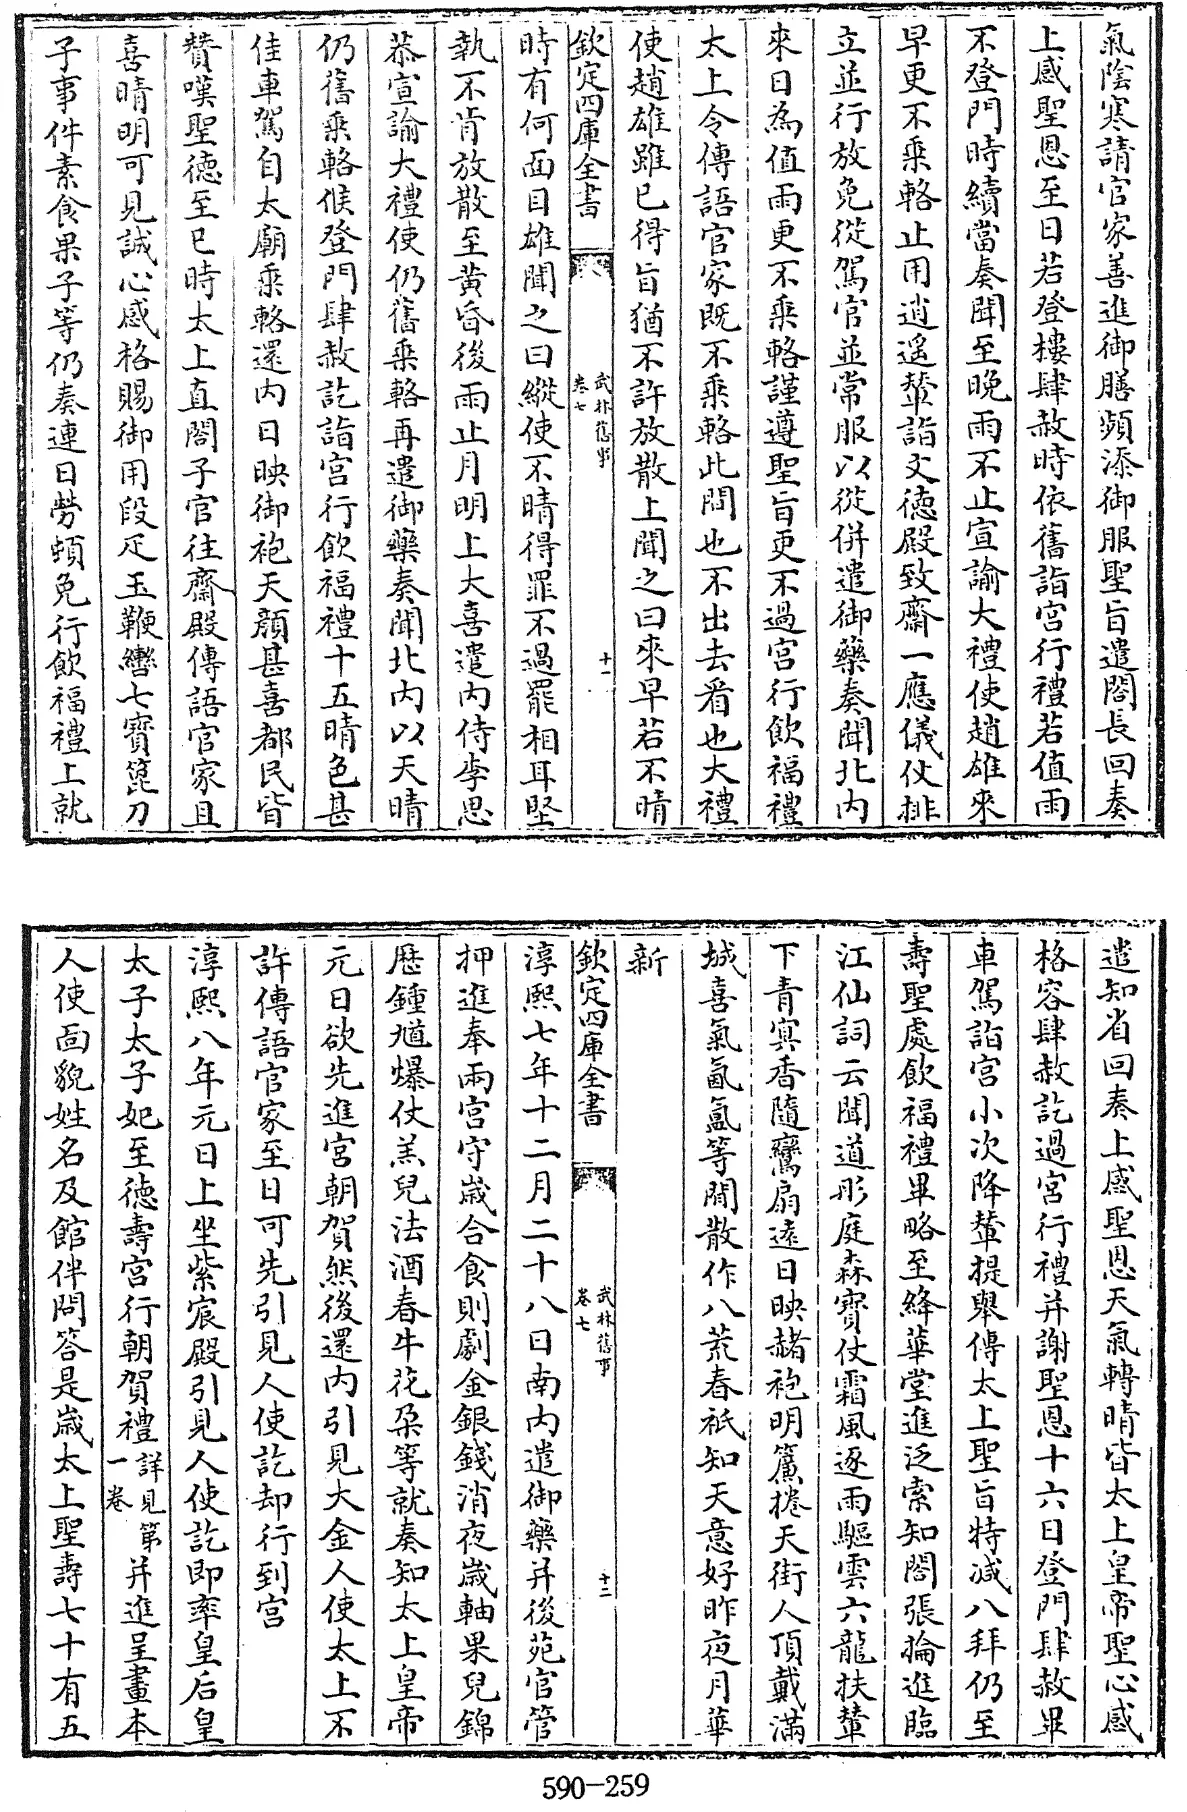 氣陰寒請官家善進御膳頻添御服聖旨遣閤長回奏
上感聖恩至日若登樓肆赦時依舊詣宮行禮若值雨
不登門時續當奏聞至晚雨不止宣諭大禮使趙雄來
早更不乗輅止用逍遙輦詣文德殿致齋一應儀仗排
立並行放免從駕官並常服以從併遣御藥奏聞北内
來日為值雨更不乗輅謹遵聖旨更不過宮行飲福禮
太上令傳語官家既不乗輅此間也不出去看也大禮
使趙雄雖已得旨猶不許放散上聞之曰來早若不晴
欽定四庫全書
武林舊事
卷七
十一
時有何面目雄聞之曰縱使不晴得罪不過罷相耳堅
執不肯放散至黄昏後雨止月明上大喜遣内侍李思
恭宣諭大禮使仍舊乗輅再遣御藥奏聞北内以天晴
仍舊乗輅候登門肆赦訖詣宮行飲福禮十五晴色甚
佳車駕自太廟乗輅還内日映御袍天顔甚喜都民皆
贊嘆聖德至巳時太上直閤子官往齋殿傳語官家且
喜晴明可見誠心感格賜御用段疋玉鞭轡七寳篦刀
子事件素食果子等仍奏連日勞頓免行飲福禮上就
遣知省回奏上感聖恩天氣轉晴皆太上皇帝聖心感
格容肆赦訖過宮行禮并謝聖恩十六日登門肆赦畢
車駕詣宮小次降輦提舉傳太上聖旨特減八拜仍至
壽聖處飲福禮畢略至絳華堂進泛索知閤張掄進臨
江仙詞云聞道彤庭森寳仗霜風逐雨驅雲六龍扶輦
下青㝠香隨鸞扇遠日映赭袍明簾捲天街人頂戴滿
城喜氣氤氲等閒散作八荒春祇知天意好昨夜月華
新
欽定四庫全書
武林舊事
卷七
十二
淳熙七年十二月二十八日南内遣御藥并後苑官管
押進奉兩宮守歲合食則劇金銀錢消夜歲軸果兒錦
歴鍾馗爆仗羔兒法酒春牛花朶等就奏知太上皇帝
元日欲先進宮朝賀然後還内引見大金人使太上不
許傳語官家至日可先引見人使訖却行到宮
淳熙八年元日上坐紫宸殿引見人使訖即率皇后皇
太子太子妃至德壽宮行朝賀禮詳見第一卷并進呈畫本
人使面貌姓名及館伴問答是歲太上聖壽七十有五
590-259